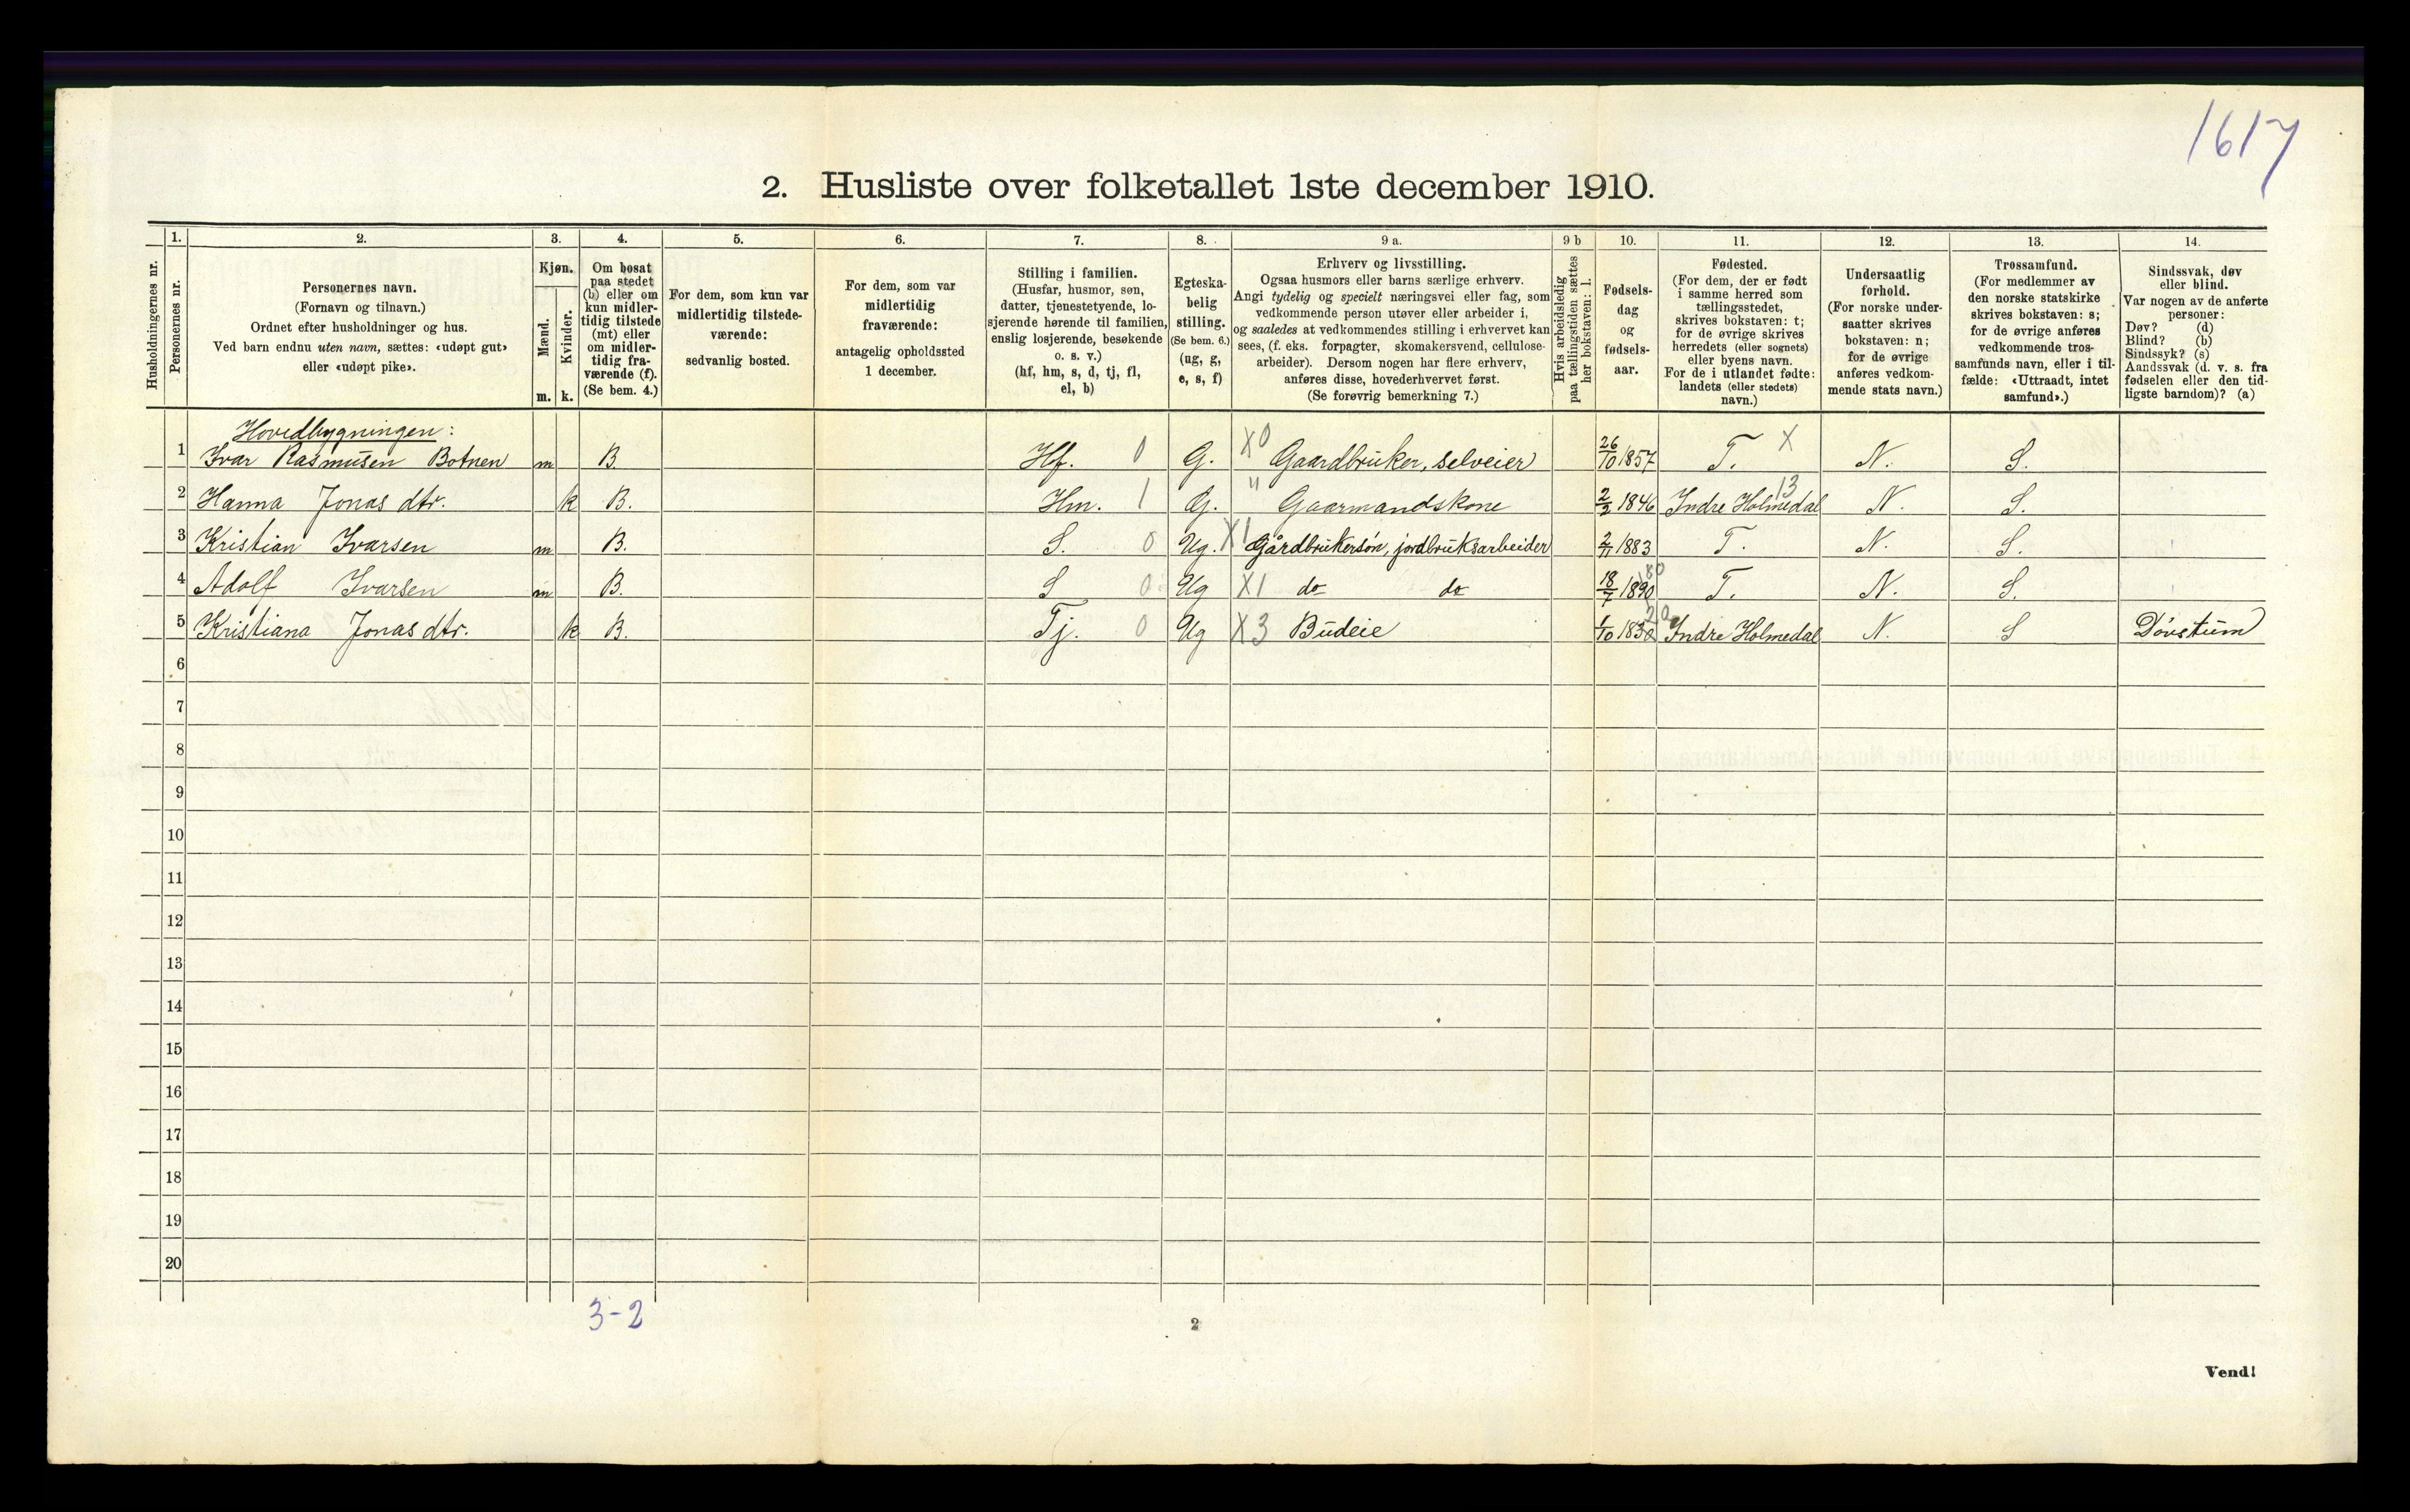 1617
2. Husliste over folketallet 1ste december 1910.
Husholdningernes nr.
1. Personernes nr.
2. Personernes navn.
(Fornavn og tilnavn.)
Ordnet efter husholdninger og hus.
Ved barn endnu uten navn, sættes: «udøpt gut»
eller «udøpt pike».
3. Kjøn.
Mænd. m.
Kvinder. k.
4. Om bosat
paa stedet
(b) eller om
kun midler-
tidig tilstede
(mt) eller
om midler-
tidig fra-
værende (f).
(Se bem. 4.)
5. For dem, som kun var
midlertidig tilstede-
værende:
sedvanlig bosted.
6. For dem, som var
midlertidig
fraværende:
antagelig opholdssted
1 december.
7. Stilling i familien.
(Husfar, husmor, søn,
datter, tjenestetyende, lo-
sjerende hørende til familien,
enslig losjerende, besøkende
o. s. v.)
(hf, hm, s, d, tj, fl,
el, b)
8. Egteska-
belig
stilling.
(Se bem. 6.)
(ug, g,
e, s, f)
9 a. Erhverv og livsstilling.
Ogsaa husmors eller barns særlige erhverv.
Angi tydelig og specielt næringsvei eller fag, som
vedkommende person utøver eller arbeider i,
og saaledes at vedkommendes stilling i erhvervet kan
sees, (f. eks. forpagter, skomakersvend, cellulose-
arbeider). Dersom nogen har flere erhverv,
anføres disse, hovederhvervet først.
(Se forøvrig bemerkning 7.)
9 b Hvis arbeidsledig
paa tællingstiden sættes
her bokstaven: l.
10. Fødsels-
dag
og
fødsels-
aar.
11. Fødested.
(For dem, der er født
i samme herred som
tællingsstedet,
skrives bokstaven: t;
for de øvrige skrives
herredets (eller sognets)
eller byens navn.
For de i utlandet fødte:
landets (eller stedets)
navn.)
12. Undersaatlig
forhold.
(For norske under-
saatter skrives
bokstaven: n;
for de øvrige
anføres vedkom-
mende stats navn.)
13. Trossamfund.
(For medlemmer av
den norske statskirke
skrives bokstaven: s;
for de øvrige anføres
vedkommende tros-
samfunds navn, eller i til-
fælde: «Uttraadt, intet
samfund».)
14. Sindssvak, døv
eller blind.
Var nogen av de anførte
personer:
Døv? (d)
Blind? (b)
Sindssyk? (s)
Aandssvak (d. v. s. fra
fødselen eller den tid-
ligste barndom)? (a)
Hovedbygningen:
1 Ivar Rasmusen Botnen m B. Hf. 0 G. X0 Gaardbruker, selveier 26/10 1857 T. X N. S.
2 Hanna Jonas dtr. k B. Hm. 1 G. " Gaarmandskone 2/2 1846 Indre Holmedal 13 N. S.
3 Kristian Ivarsen m B. S. 0 Ug. X1 Gårdbrukersøn, jordbruksarbeider 2/11 1883 T. N. S.
4 Adolf Ivarsen m B. S 0 Ug X1 do do 18/7 1890 T. N. S.
5 Kristiana Jonas dtr. k B. Tj. 0 Ug X3 Budeie 1/10 1830 Indre Holmedal N. S Døvstum
6
7
8
9
10
11
12
13
14
15
16
17
18
19
20
3-2
2
Vend!